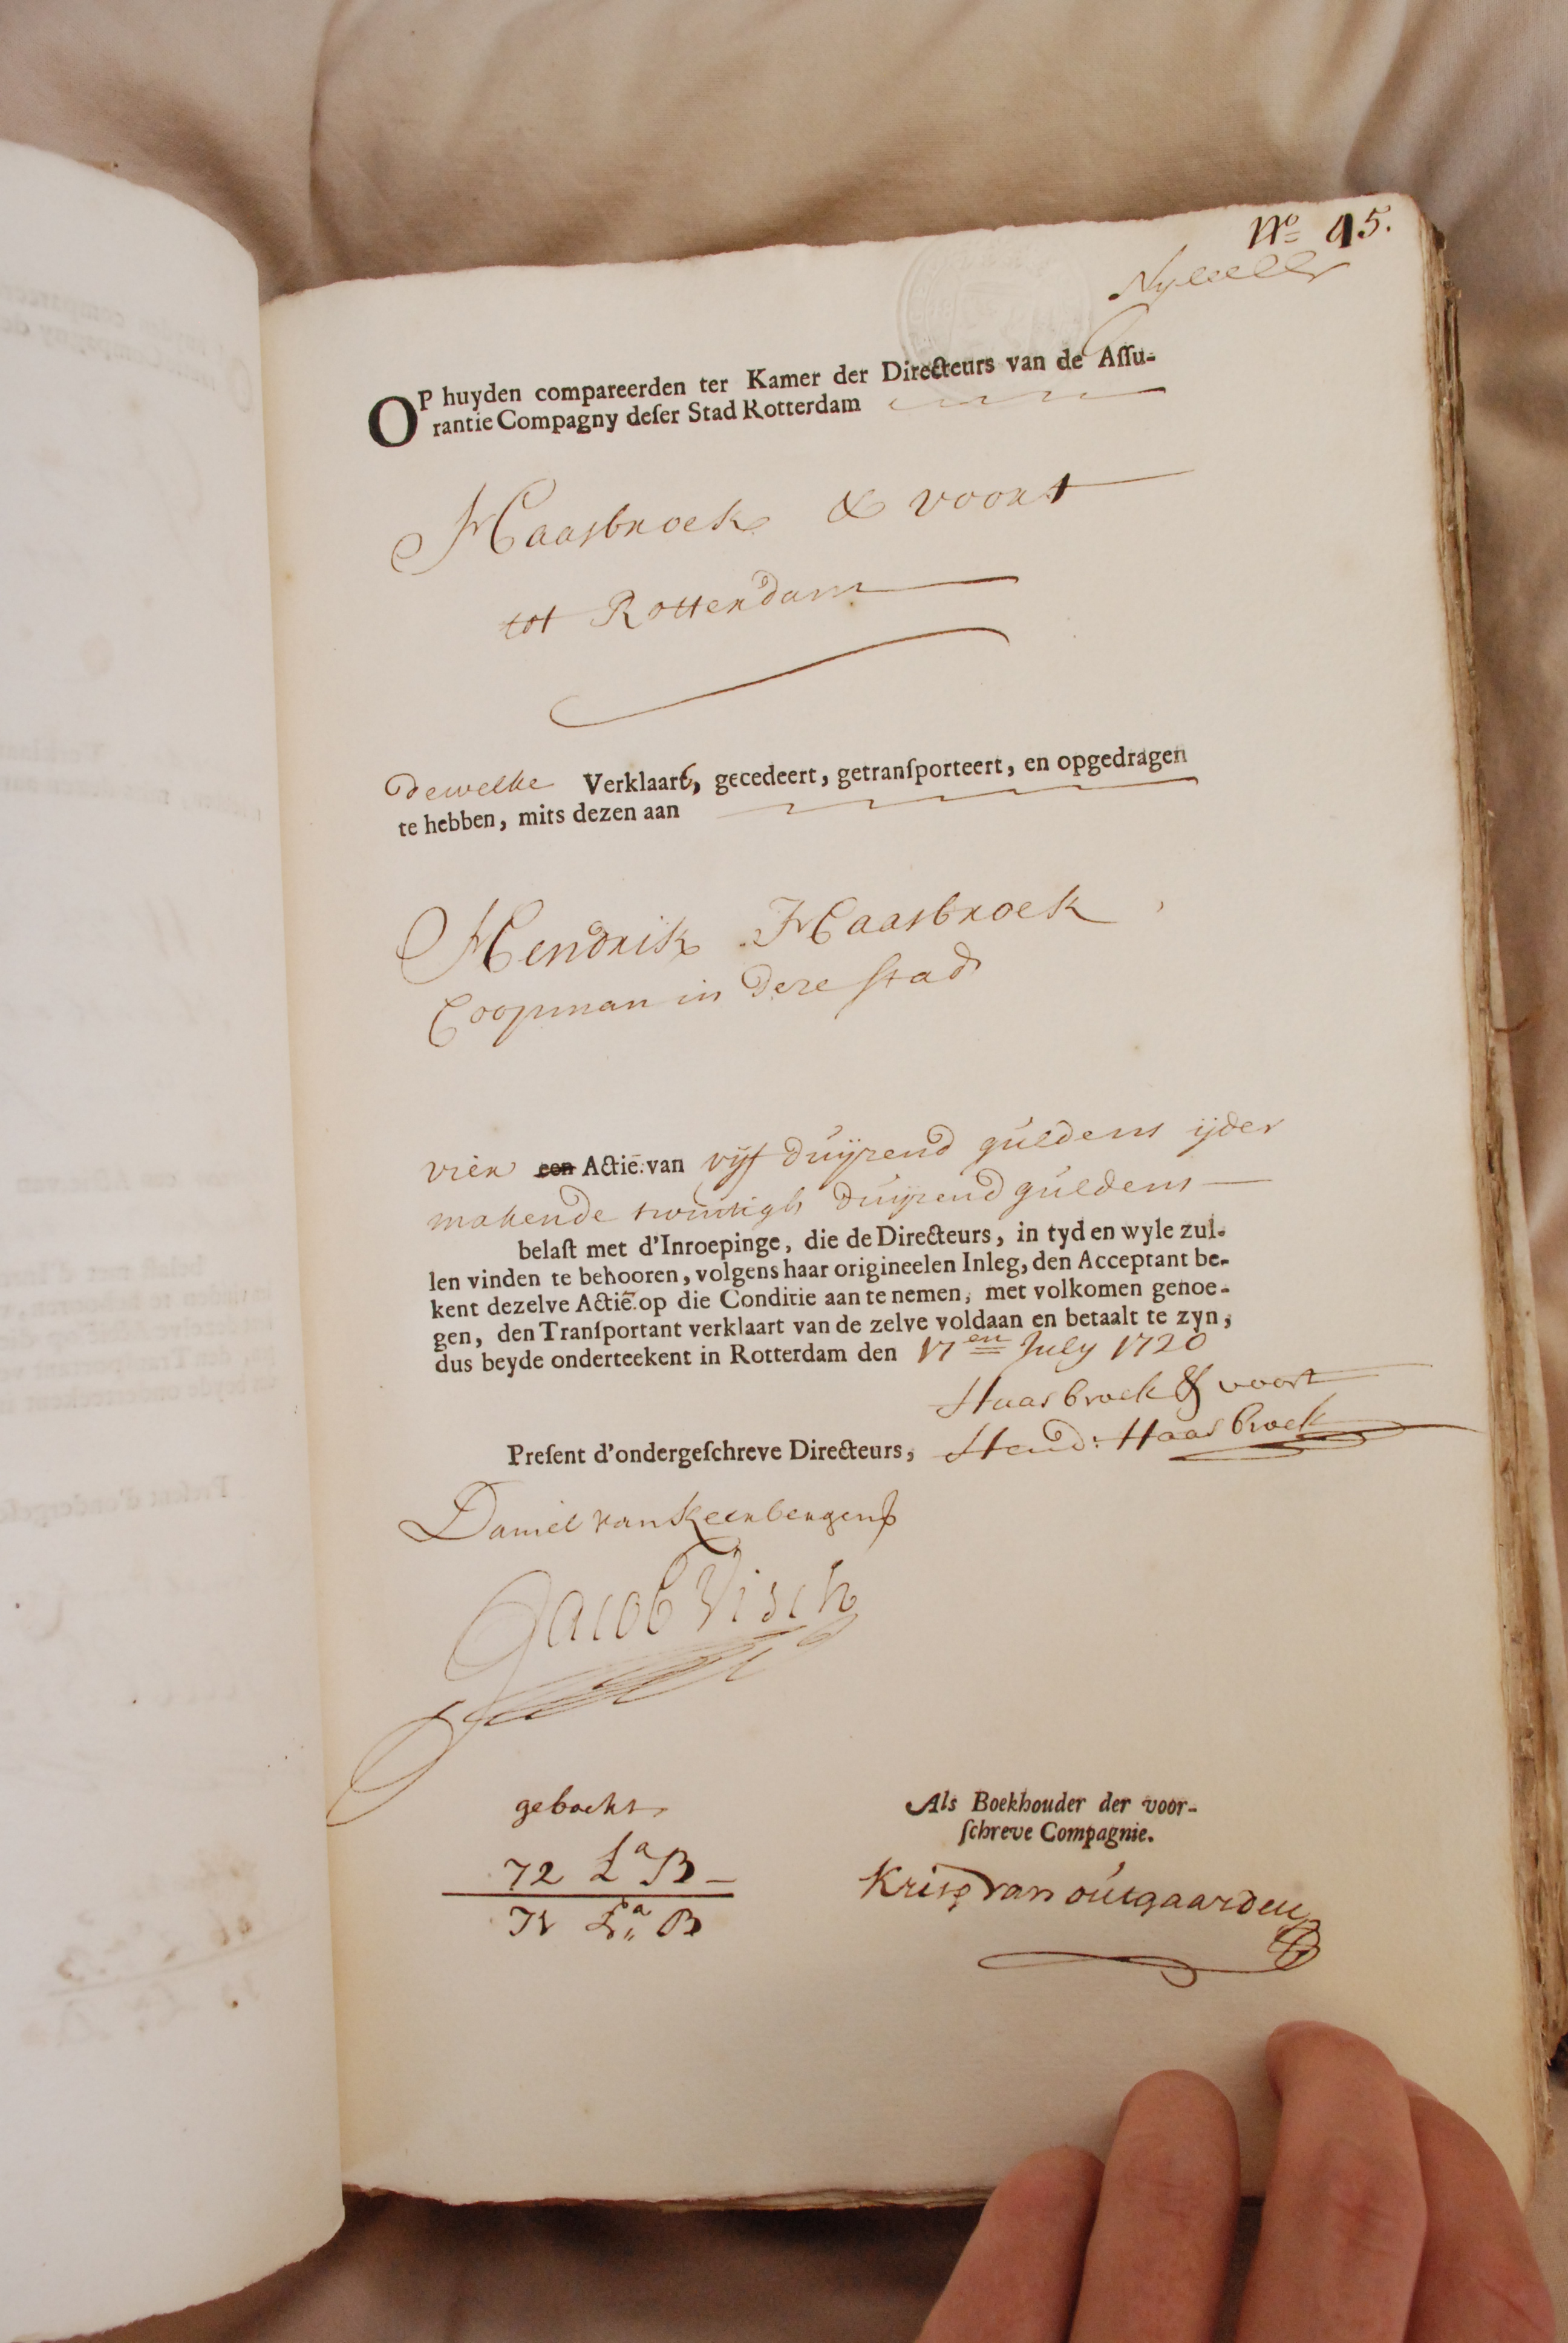 No 45.
OP huyden compareerden ter Kamer der Directeurs van de Aſſu-
rantie Compagny deſer Stad Rotterdam
Haasbroek & voort
tot Rotterdam
dewelke Verklaart, gecedeert, getranſporteert, en opgedragen
te hebben, mits dezen aan
Hendrik Haasbroek
Coopman in deze stad
vier een Actie van vijf duijzend guldens ijder
makende twintigh duijzend guldens
belaſt met d'Inroepinge, die de Directeurs, in tyd en wyle zul-
len vinden te behooren, volgens haar origineelen Inleg, den Acceptant be-
kent dezelve Actie op die Conditie aan te nemen, met volkomen genoe-
gen, den Tranſportant verklaart van de zelve voldaan en betaalt te zyn,
dus beyde onderteekent in Rotterdam den 17en July 1720
Haasbroek & voort
Preſent d'ondergeſchreve Directeurs, Hend: Haasbroek
Daniel van Keerbergen
Jacob Visch
geboekt
Als Boekhouder der voor-
ſchreve Compagnie.
72 La B
71 La B
Kris van outgaarden